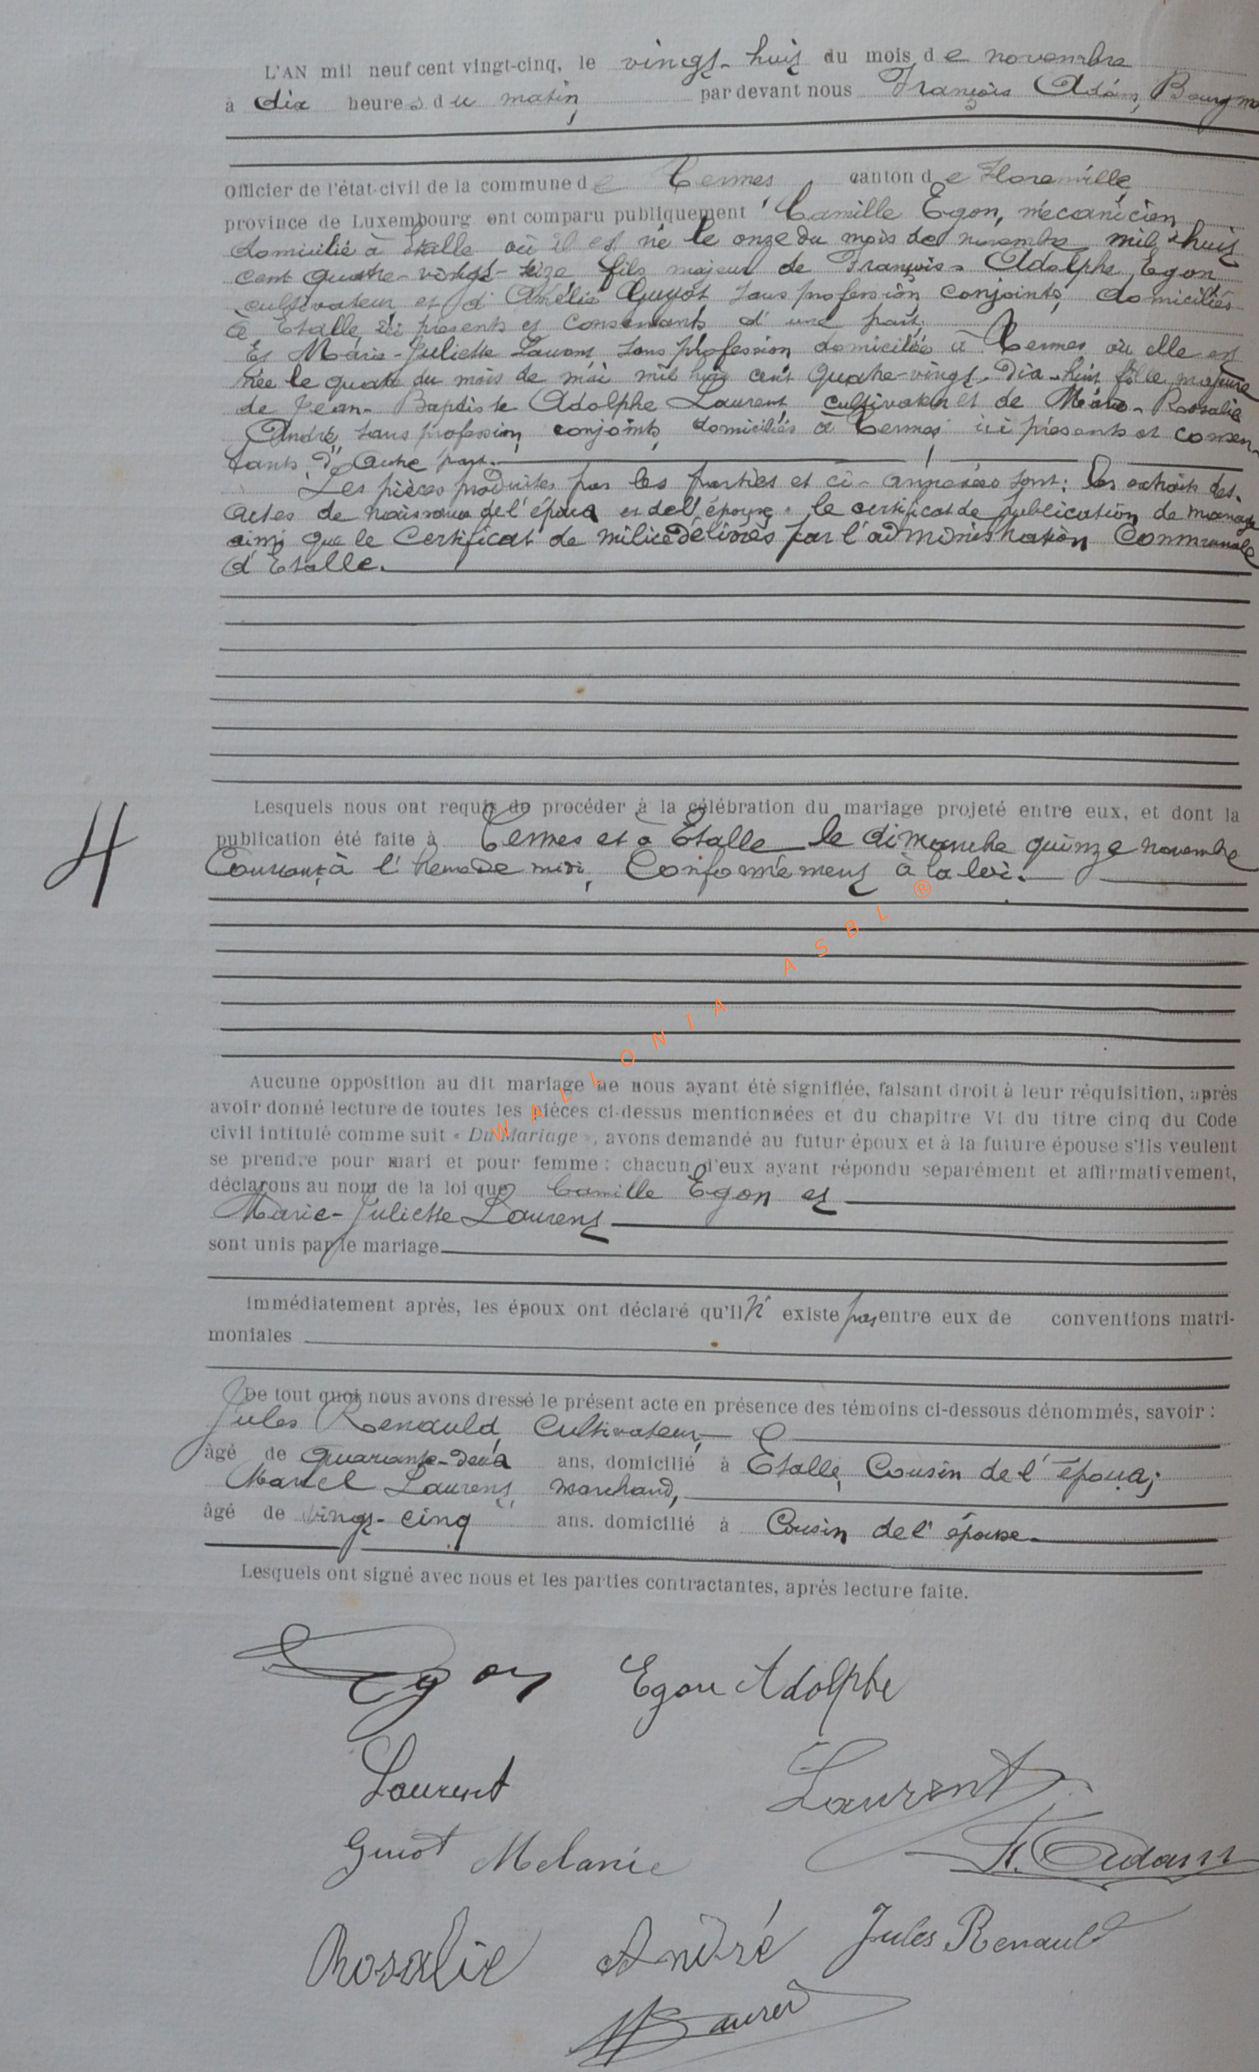 L'AN mil neuf cent vingt-cinq, le vingt-huit du mois de novembre
à dix heures du matin, par devant nous François Adam, Bourgm
Officier de l'état-civil de la commune de Termes, canton de Florenville,
province de Luxembourg ont comparu publiquement Camille Egon, mécanicien
domicilié à Etalle où il est né le onze du mois de novembre mil huit
cent quatre-vingt-seize fils majeur de François-Adolphe Egon
cultivateur et d'Amélie Guyot sans profession conjoints, domiciliés
à Etalle, ici présents et consentants d'une part;
Et Marie-Juliette Laurent sans profession domiciliée à Termes où elle est
née le quatre du mois de mai mil huit cent quatre-vingt-dix-huit fille majeure
de Jean-Baptiste Adolphe Laurent, cultivateur et de Marie-Rosalie
André, sans profession, conjoints, domiciliés à Termes, ici présents et consen-
tants, d'autre part.
Les pièces produites par les parties et ci-annexées sont: les extraits des
actes de naissance de l'époux et de l'épouse, le certificat de publication de mariage
ainsi que le Certificat de milice délivrés par l'administration Communale
d'Etalle.
Lesquels nous ont requis de procéder à la célébration du mariage projeté entre eux, et dont la
publication été faite à Termes et à Etalle le dimanche quinze novembre
Courant à l'heure de midi, Conformément à la loi.
4
Aucune opposition au dit mariage ne nous ayant été signifiée, faisant droit à leur réquisition, après
avoir donné lecture de toutes les pièces ci-dessus mentionnées et du chapitre VI du titre cinq du Code
civil intitulé comme suit « Du Mariage », avons demandé au futur époux et à la future épouse s'ils veulent
se prendre pour mari et pour femme : chacun d'eux ayant répondu séparément et affirmativement,
déclarons au nom de la loi que Camille Egon et
Marie-Juliette Laurent
sont unis par le mariage
Immédiatement après, les époux ont déclaré qu'il n'existe pas entre eux de conventions matri-
moniales
De tout quoi nous avons dressé le présent acte en présence des témoins ci-dessous dénommés, savoir :
Jules Renauld, Cultivateur,
âgé de quarante-deux ans, domicilié à Etalle, Cousin de l'époux;
Marcel Laurent, marchand,
âgé de vingt-cinq ans. domicilié à Cousin de l'épouse.
Lesquels ont signé avec nous et les parties contractantes, après lecture faite.
Egon Egon Adolphe
Laurent Laurent
Guiot Melanie F. Adam
Rosalie André Jules Renauld
M Laurent
WALLONIA ASBL ®